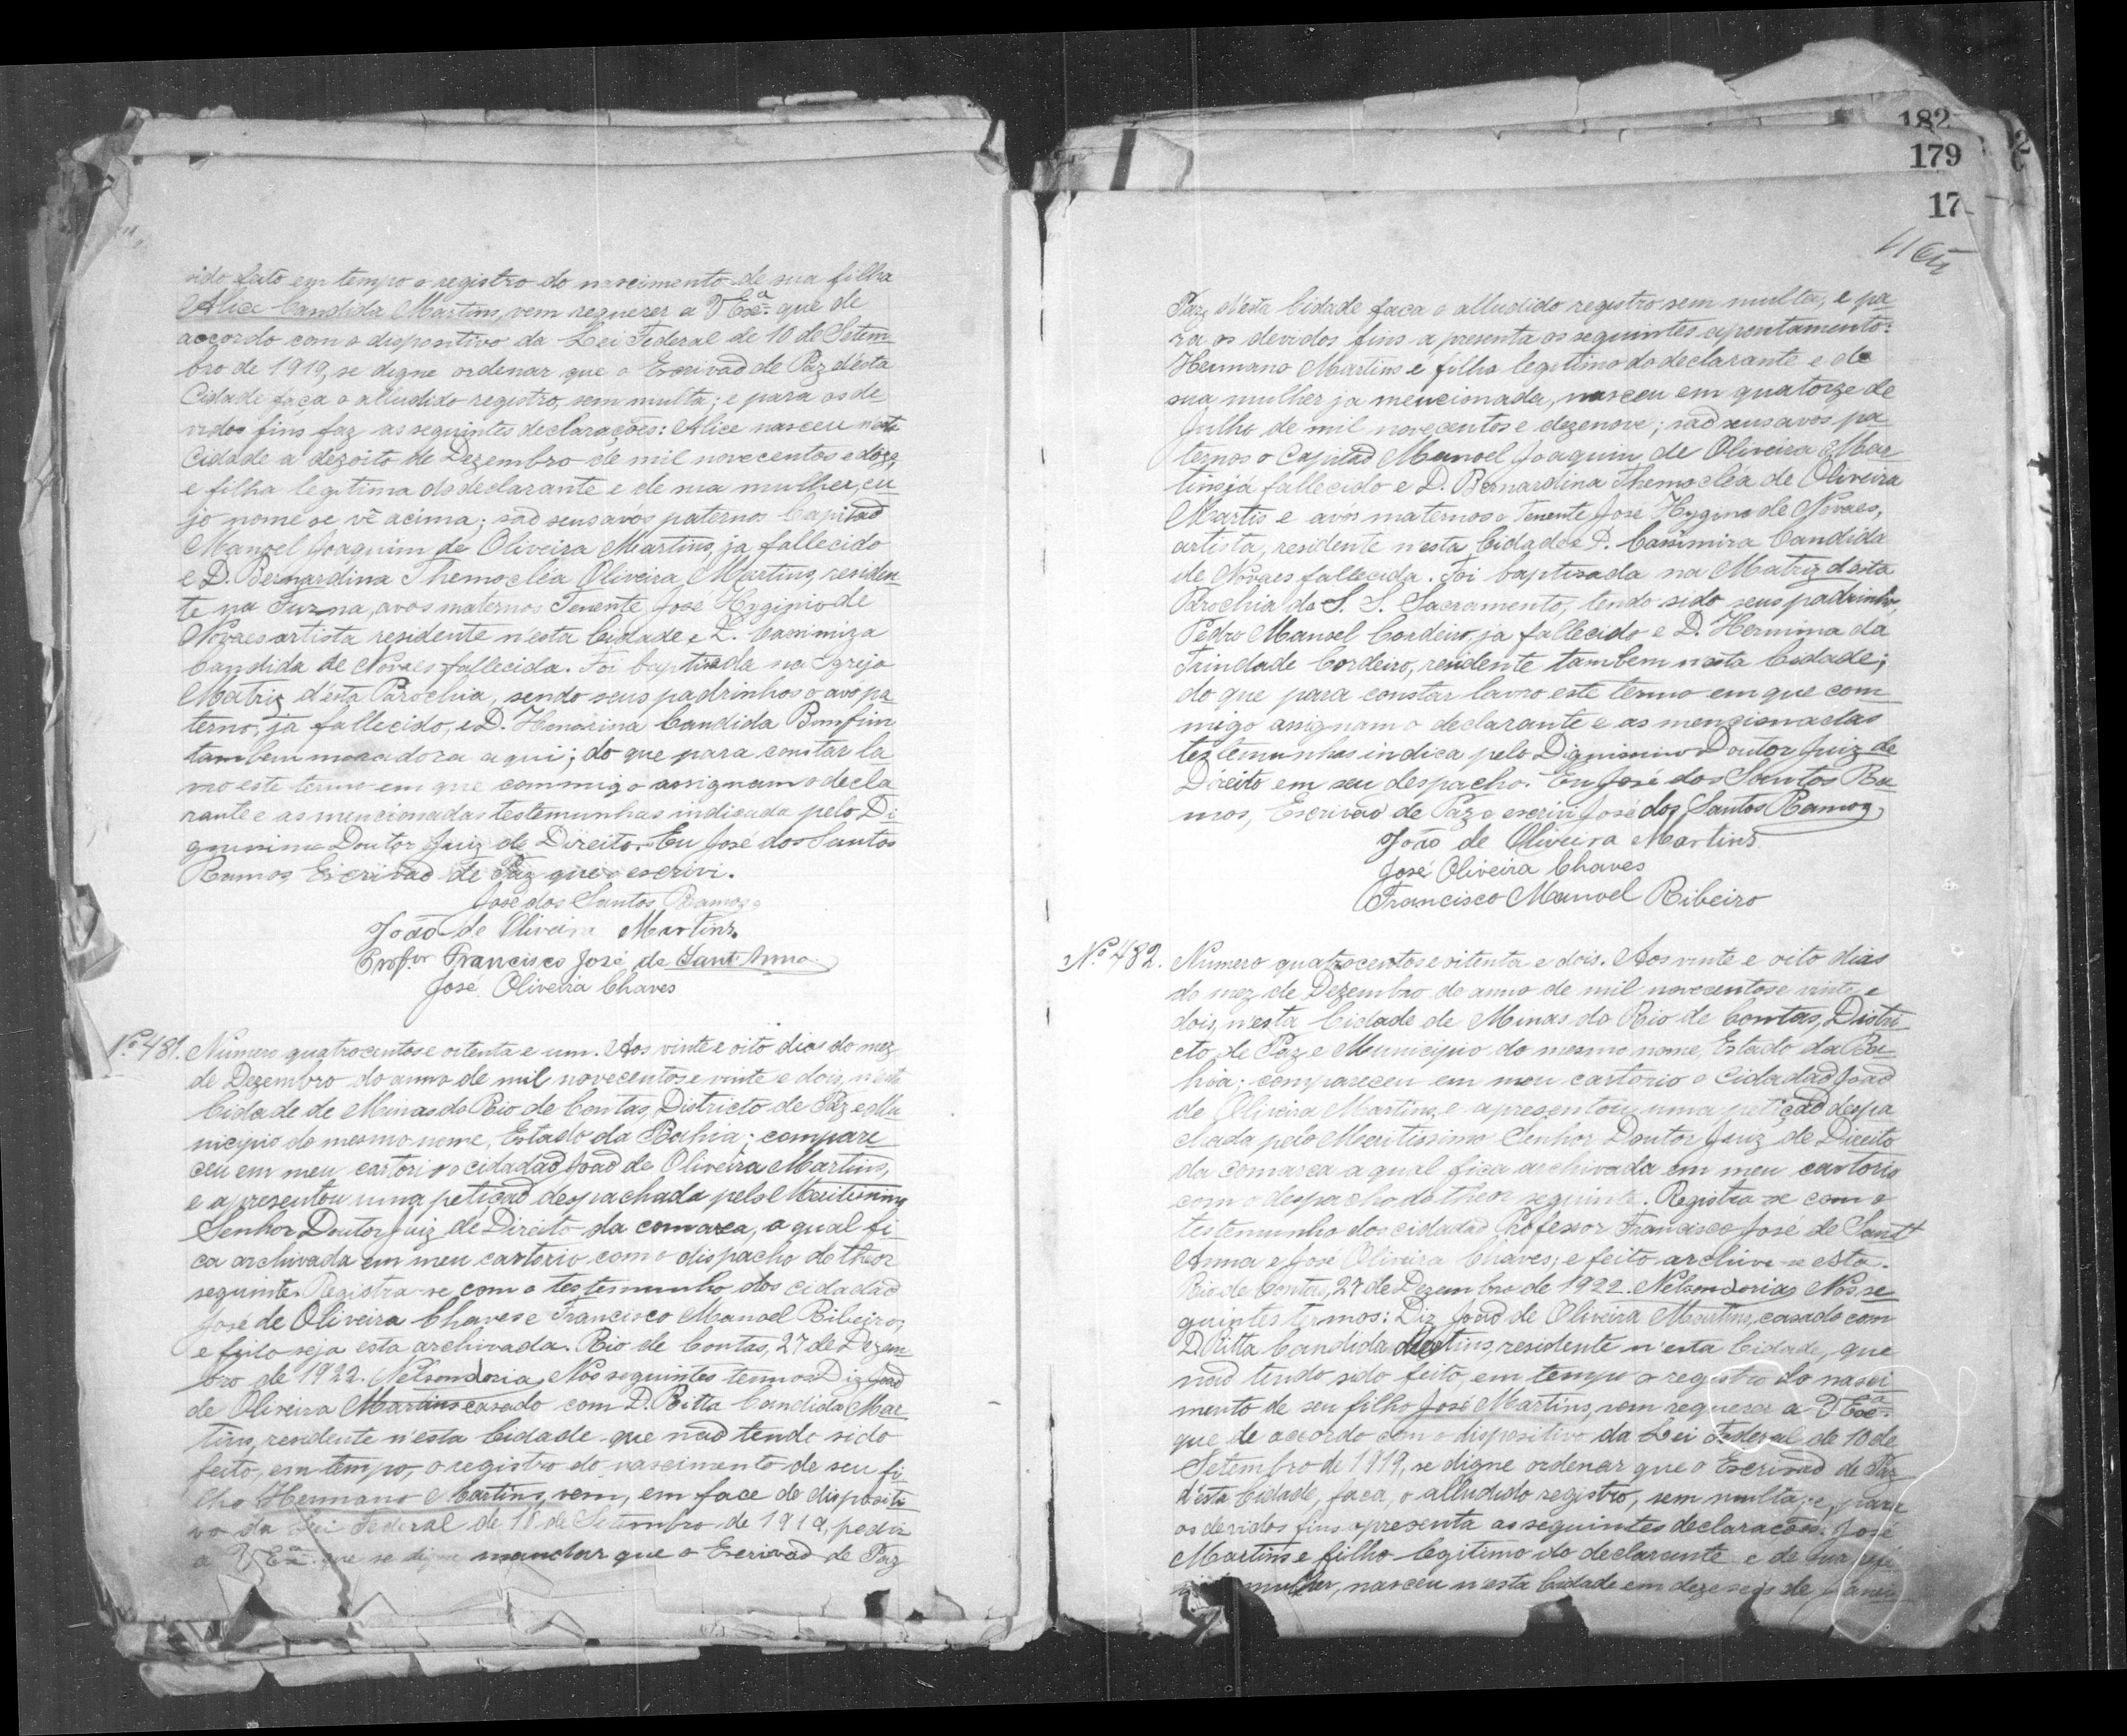 sido feito em tempo o registro do nascimento de sua filha
Alice Candida Martins, vem requerer a V Exª. que de
accordo com o dispositivo da Lei Federal de 10 de Setem-
bro de 1919, se digne ordenar que o Escrivaõ de Paz d'esta
Cidade faça o alludido registro, sem multa; e para os de-
vidos fins faz as seguintes declarações: Alice nasceu n'esta
Cidade a dezoito de Dezembro de mil novecentos e doze,
e filha legitima do declarante e de sua mulher, cu-
jo nome se vê acima; saõ seus avós paternos Capitaõ
Manoel Joaquim de Oliveira Martins, ja fallecido
e D. Bernardina Themocléa Oliveira Martins, residen-
te na Furna, avos maternos Tenente José Hyginio de
Novaes artista residente n'esta Cidade e D. Casimiza
Candida de Novaes fallecida. Foi baptisada na Igreja
Matriz d'esta Parochia, sendo seus padrinhos o avô pa-
terno, ja fallecido, e D. Honorina Candida Bomfim
tambem moradora aqui; do que para constar la
vro este termo em que commigo assignam o decla-
rante e as mencionadas testemunhas indicada pelo Di-
gnissimo Doutor Juiz de Direito. Eu José dos Santos
Ramos, Escrivaõ de Paz que o escrivi.
José dos Santos Ramos
João de Oliveira Martins.
Profor Francisco José de Sant'Anna
José Oliveira Chaves
Nº 481. Numero quatrocentos e oitenta e um. Aos vinte e oito dias do mez
de Dezembro do anno de mil novecentos e vinte e dois, n'esta
Cidade de Minas do Rio de Contas, Districto de Paz e Mu-
nicipio do mesmo nome, Estado da Bahia; compare-
ceu em meu cartorio o cidadaõ Joaõ de Oliveira Martins,
e apresentou uma petiçaõ despachada pelo Meritissimo
Senhor Doutor Juiz de Direito da comarca, a qual fi-
ca archivada em meu cartorio com o dispacho do theor
seguinte. Registra-se com o testemunho dos cidadaõ
José de Oliveira Chaves e Francisco Manoel Ribeiro;
e feito seja esta archivada. Rio de Contas, 27 de Dezem-
bro de 1922. Nelson Doria. Nos seguintes termos: Diz Joaõ
de Oliveira Martins casado com D. Ritta Candida Mar-
tins, residente n'esta Cidade que naõ tendo sido
feito, em tempo, o registro do nascimento de seu fi-
lho Hermano Martins, vem, em face do dispositi-
vo da Lei Federal de 10 de Setembro de 1919, pedir
a V Exª. que se digne mandar que o Escrivaõ de Paz
182
179
17
Paz d'esta Cidade faça o alludido registro sem multa, e pa-
ra os devidos fins apresenta os seguintes apontamento:
Hermano Martins e filho legitimo do declarante e de
sua mulher ja mencionada, nasceu em quatorze de
Julho de mil novecentos e dezenove; saõ seus avos pa-
ternos o Capitaõ Manoel Joaquim de Oliveira Mar-
tins já fallecido e D. Bernardina Themocléa de Oliveira
Martis e avos maternos o Tenente José Hygino de Novaes,
artista, residente n'esta Cidade e D. Casimira Candida
de Novaes fallecida. Foi baptisada na Matriz d'esta
Parochia do S. S. Sacramento, tendo sido seus padrinho,
Pedro Manoel Cordeiro, ja fallecido e D. Hermina da
Trindade Cordeiro, residente tambem n'esta Cidade;
do que para constar lavro este termo em que com-
migo assignam o declarante e as mencionadas
testemunhas indica pelo Dignissimo Doutor Juiz de
Direito em seu despacho. Eu José dos Santos Ra-
mos, Escrivão de Paz o escrivi José dos Santos Ramos
João de Oliveira Martins
José Oliveira Chaves
Francisco Manoel Ribeiro
Nº 482. Numero quatrocentos e oitenta e dois. Aos vinte e oito dias
do mez de Dezembro do anno de mil novecentos e vinte e
dois, n'esta Cidade de Minas do Rio de Contas, Distri-
cto de Paz e Municipio do mesmo nome, Estado da Ba-
hia; compareceu em meu cartorio o Cidadaõ Joaõ
de Oliveira Martins, e apresentou uma petiçaõ despa
chada pelo Meritissimo Senhor Doutor Juiz de Direito
da comarca a qual fica archivada em meu cartorio
com o despacho do theor seguinte. Registra-se com o
testemunho dos cidadaõ Professor Francisco José de Sant'
Anna e José Oliveira Chaves; e feito archive-se esta.
Rio de Contas, 27 de Dezembro de 1922. Nelson Doria. Nos se-
guintes termos: Diz Joaõ de Oliveira Martins, casado com
D. Ritta Candida Martins, residente n'esta Cidade, que
naõ tendo sido feito, em tempo o registro do nasci-
mento de seu filho José Martins, vem requerer a V Exª.
que, de accordo com o dispositivo da Lei Federal de 10 de
Setembro de 1919, se digne ordenar que o Escrivaõ de Paz
d'esta Cidade, faça, o alludido registro, sem multa; e, para
os devidos fins apresenta as seguintes declarações: José
Martins e filho legitimo do declarante e de sua refe-
mulher, nasceu n'esta Cidade em dezeseis de Janei-